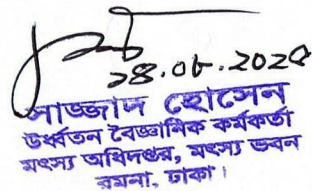 সাজ্জাদ হোসেন
উর্ধ্বতন বৈজ্ঞানিক কর্মকর্তা
মৎস্য অধিদপ্তর, মৎস্য ভবন
রমনা, ঢাকা।